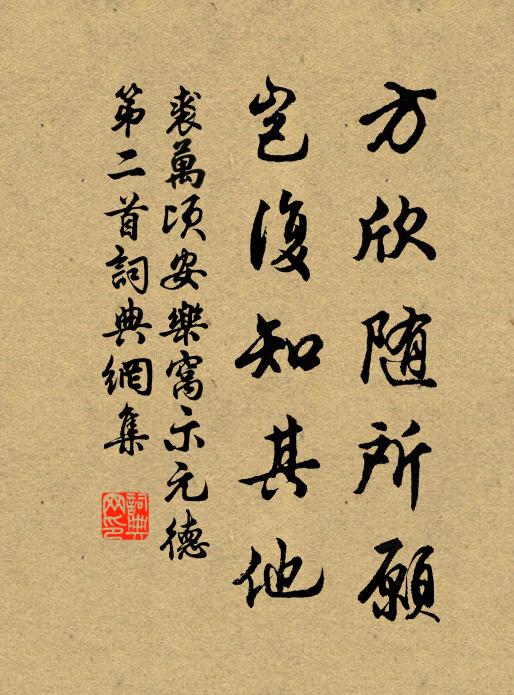 方欣随所願
豈復知其他
裘萬頃安樂窩示元德
第二首詞典網集
詞典網印